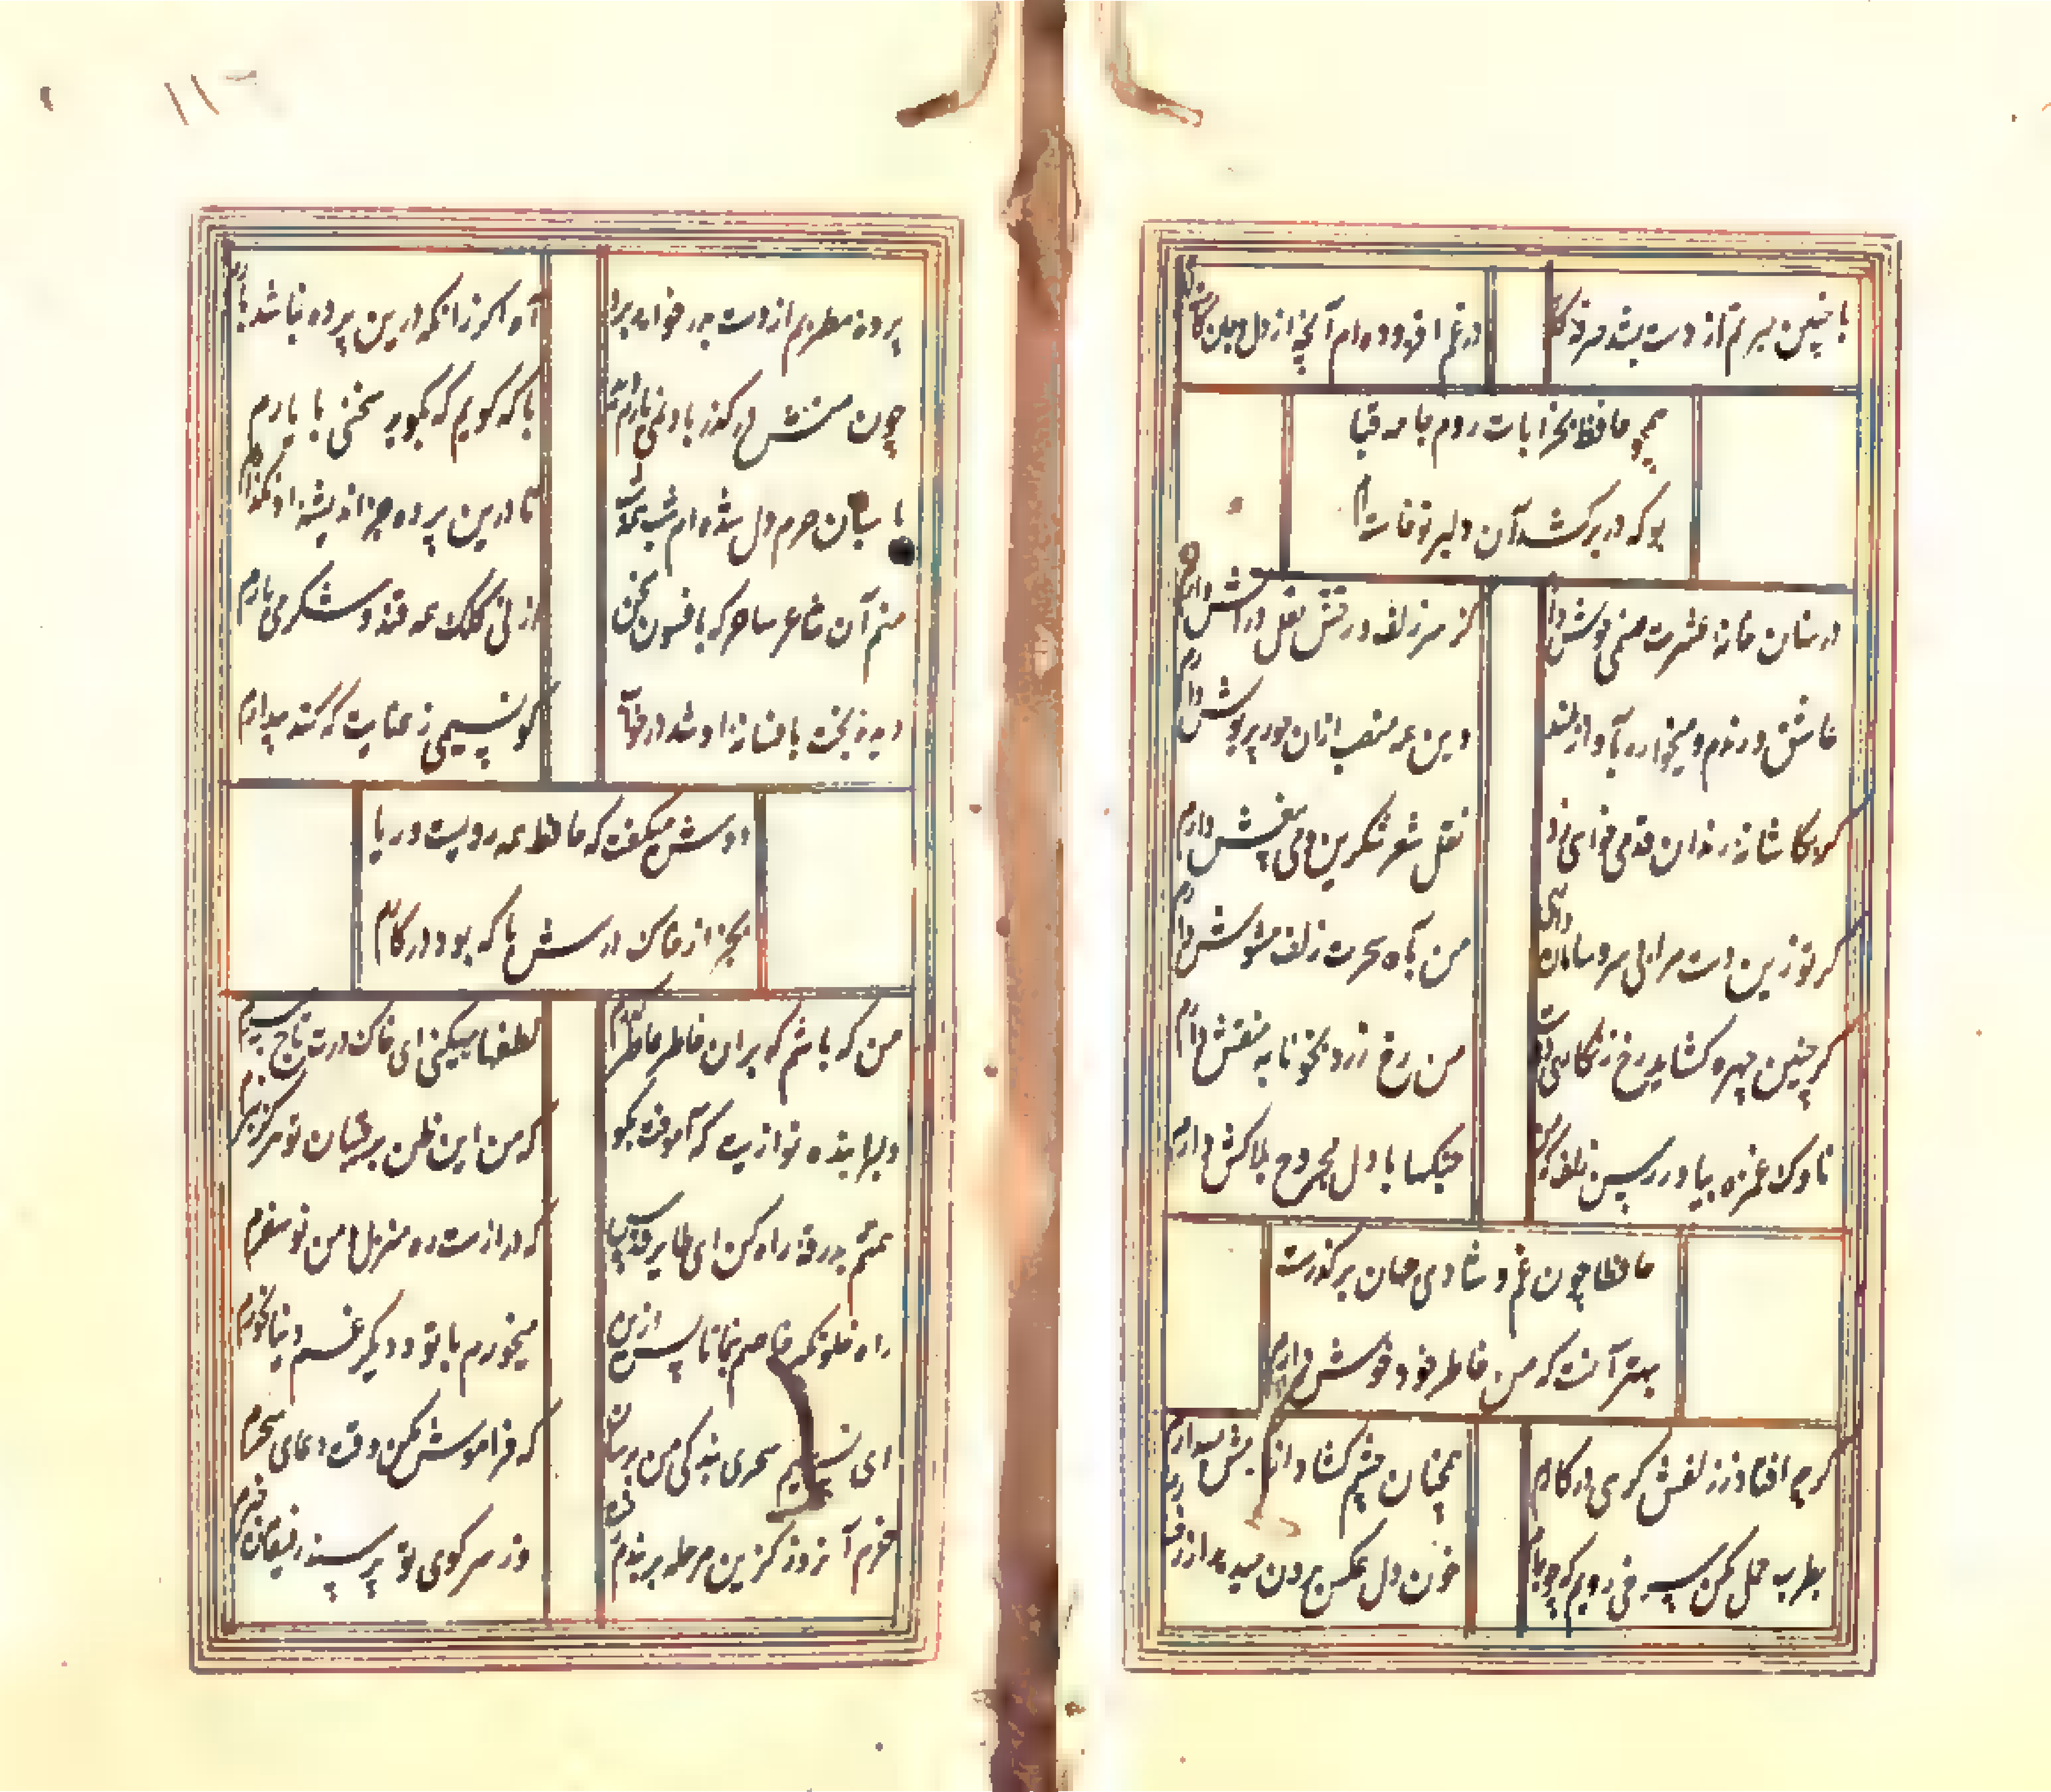 با چنین حیرتم از دست بشد صرفه کار
در غم افزوده‌ام آنچه از دل و جان کاسته‌ام
همچو حافظ بخرابات روم جامه قبا
بو که در بر کشد آن دلبر نوخاسته‌ام
در نهان خانه عشرت صنمی خوش دارم
کز سر زلف و رخش نعل در آتش دارم
عاشق و رندم و میخواره بآواز بلند
وین همه منصب از آن حور پریوش دارم
گر بکاشانه رندان قدمی خواهی زد
نقل شعر شکرین و می بیغش دارم
گر تو زین دست مرا بی سر و سامان داری
من بآه سحرت زلف مشوش دارم
گر چنین چهره گشاید خط زنگاری دوست
من رخ زرد بخونابه منقش دارم
ناوک غمزه بیاور رسن زلف که من
جنگها با دل مجروح بلاکش دارم
حافظا چون غم و شادی جهان در گذرست
بهتر آنست که من خاطر خود خوش دارم
گرچه افتاد ز زلفش گرهی در کارم
همچنان چشم گشاد از کرمش میدارم
بطرب حمل مکن سرخی رویم که چو جام
خون دل عکس برون میدهد از رخسارم
پرده مطربم از دست بدر خواهد برد
آه اگر زانکه درین پرده نباشد بارم
چون منش در گذر باد نمی‌یارم دید
با که گویم که بگوید سخنی با یارم
پاسبان حرم دل شده‌ام شب همه شب
تا درین پرده جز اندیشه او نگذارم
منم آن شاعر ساحر که بافسون سخن
از نی کلک همه قند و شکر می‌بارم
دیده بخت بافسانه او شد در خواب
کو نسیمی ز عنایت که کند بیدارم
دوش میگفت که حافظ همه رویست و ریا
بجز از خاک درش با که بود در کارم
من که باشم که بر آن خاطر عاطر گذرم
لطفها میکنی ای خاک درت تاج سرم
دلبرا بنده نوازیت که آموخت بگو
که من این ظن برقیبان تو هرگز نبرم
همتم بدرقه راه کن ای طایر قدس
که درازست ره منزل و من نو سفرم
راه خلوتگه خاصم بنما تا پس ازین
میخورم با تو و دیگر غم دنیا نخورم
ای نسیم سحری بندگی من برسان
که فراموش مکن وقت دعای سحرم
خرم آنروز کزین مرحله بر بندم رخت
وز سر کوی تو پرسند رفیقان خبرم